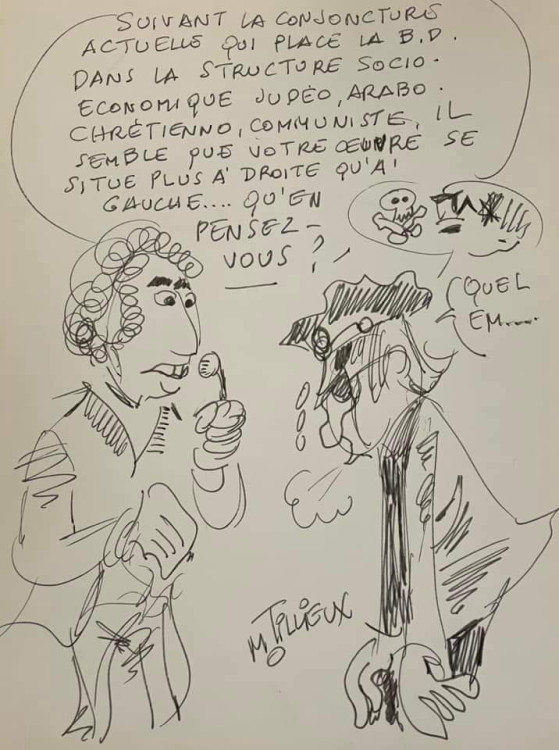 SUIVANT LA CONJONCTURE
ACTUELLE QUI PLACE LA B.D.
DANS LA STRUCTURE SOCIO-
ECONOMIQUE JUDÉO, ARABO.
CHRÉTIENNO, COMMUNISTE, IL
SEMBLE QUE VOTRE OEUVRE SE
SITUE PLUS À DROITE QU'À
GAUCHE.... QU'EN
PENSEZ-
VOUS ?
QUEL
EM....
M TILLIEUX